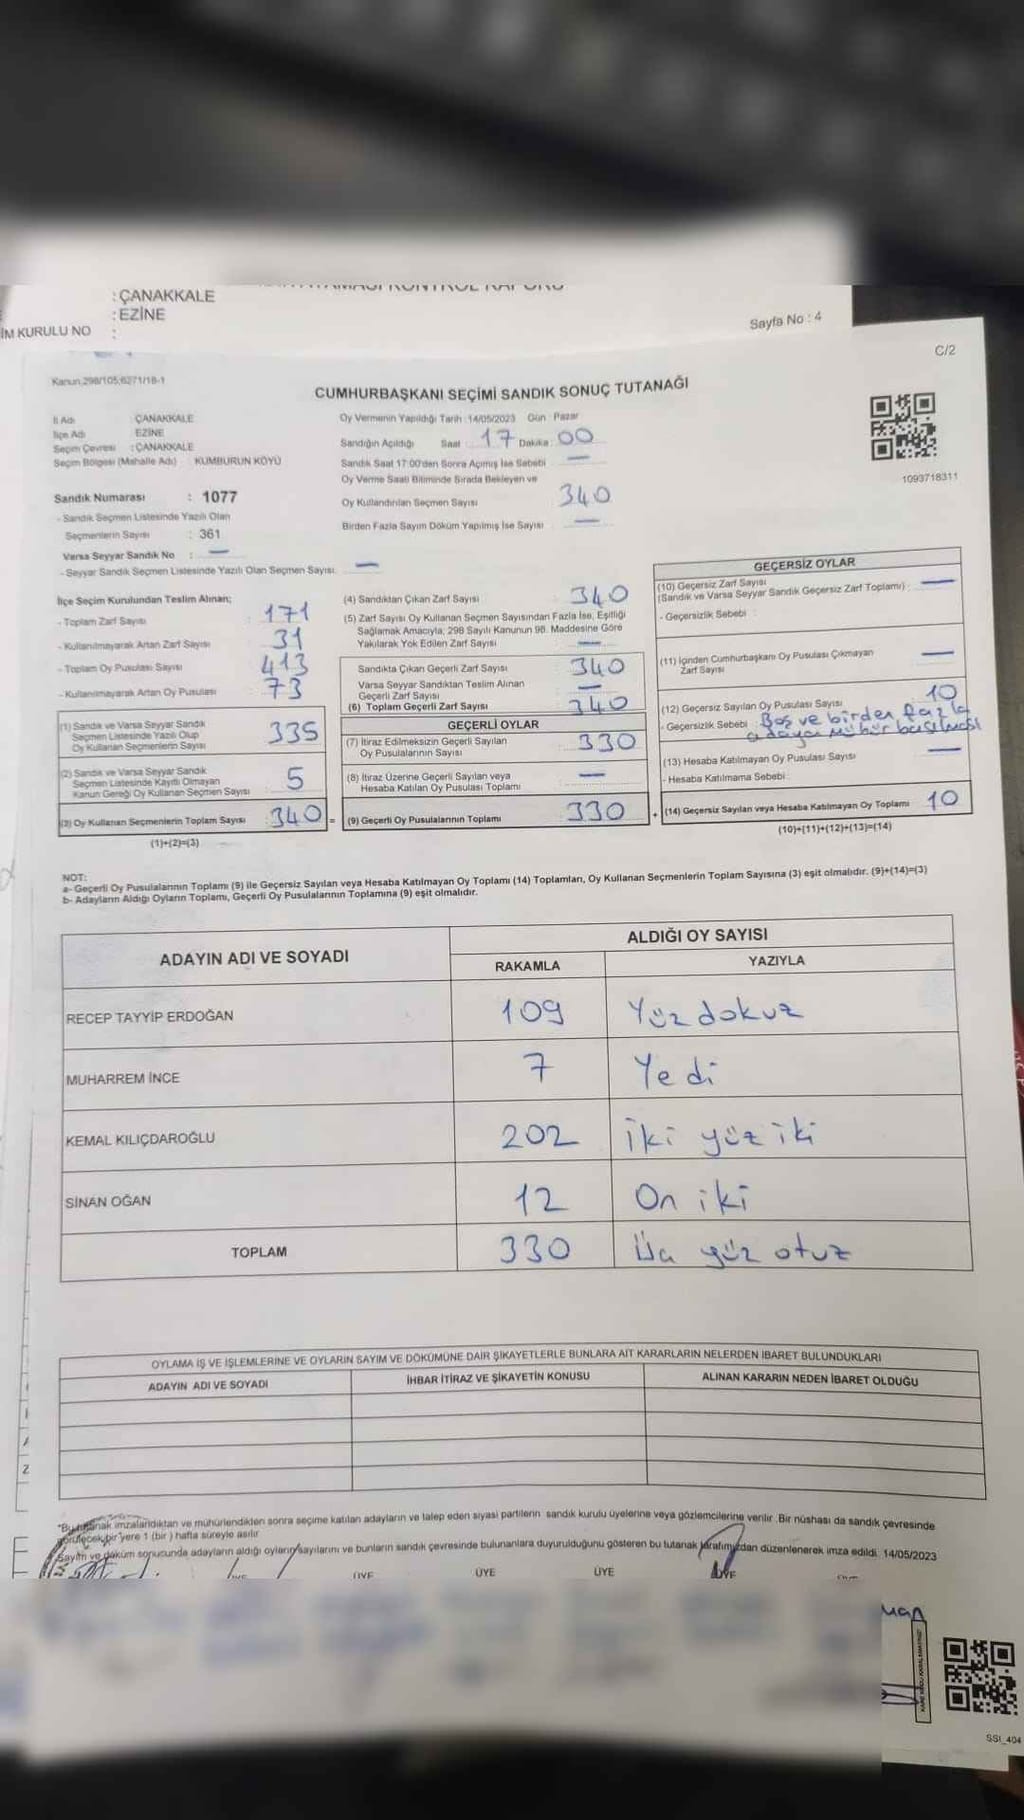 : ÇANAKKALE
: EZİNE
İM KURULU NO :
Sayfa No : 4
C/2
Kanun:298/105;6271/18-1
CUMHURBAŞKANI SEÇİMİ SANDIK SONUÇ TUTANAĞI
1093718311
İl Adı ÇANAKKALE
İlçe Adı EZİNE
Seçim Çevresi : ÇANAKKALE
Seçim Bölgesi (Mahalle Adı) : KUMBURUN KÖYÜ
Sandık Numarası : 1077
- Sandık Seçmen Listesinde Yazılı Olan
Seçmenlerin Sayısı : 361
Varsa Seyyar Sandık No : —
- Seyyar Sandık Seçmen Listesinde Yazılı Olan Seçmen Sayısı: —
Oy Vermenin Yapıldığı Tarih :14/05/2023 Gün : Pazar
Sandığın Açıldığı Saat : 17 Dakika : 00
Sandık Saat 17:00'den Sonra Açımış İse Sebebi —
Oy Verme Saati Bitiminde Sırada Bekleyen ve
Oy Kullandırılan Seçmen Sayısı 340
Birden Fazla Sayım Döküm Yapılmış İse Sayısı —
İlçe Seçim Kurulundan Teslim Alınan;
- Toplam Zarf Sayısı : 171
- Kullanılmayarak Artan Zarf Sayısı : 31
- Toplam Oy Pusulası Sayısı : 413
- Kullanılmayarak Artan Oy Pusulası : 73
(1) Sandık ve Varsa Seyyar Sandık
Seçmen Listesinde Yazılı Olup
Oy Kullanan Seçmenlerin Sayısı 335
(2) Sandık ve Varsa Seyyar Sandık
Seçmen Listesinde Kayıtlı Olmayan
Kanun Gereği Oy Kullanan Seçmen Sayısı 5
(3) Oy Kullanan Seçmenlerin Toplam Sayısı 340 =
(1)+(2)=(3)
(4) Sandıktan Çıkan Zarf Sayısı 340
(5) Zarf Sayısı Oy Kullanan Seçmen Sayısından Fazla İse, Eşitliği
Sağlamak Amacıyla, 298 Sayılı Kanunun 98. Maddesine Göre
Yakılarak Yok Edilen Zarf Sayısı —
Sandıkta Çıkan Geçerli Zarf Sayısı 340
Varsa Seyyar Sandıktan Teslim Alınan
Geçerli Zarf Sayısı —
(6) Toplam Geçerli Zarf Sayısı 340
GEÇERLİ OYLAR
(7) İtiraz Edilmeksizin Geçerli Sayılan
Oy Pusulalarının Sayısı 330
(8) İtiraz Üzerine Geçerli Sayılan veya
Hesaba Katılan Oy Pusulası Toplamı —
(9) Geçerli Oy Pusulalarının Toplamı 330 +
GEÇERSİZ OYLAR
(10) Geçersiz Zarf Sayısı
(Sandık ve Varsa Seyyar Sandık Geçersiz Zarf Toplamı) : —
- Geçersizlik Sebebi :
(11) İçinden Cumhurbaşkanı Oy Pusulası Çıkmayan
Zarf Sayısı —
(12) Geçersiz Sayılan Oy Pusulası Sayısı 10
- Geçersizlik Sebebi : Boş ve birden fazla
adaya mühür basılması
(13) Hesaba Katılmayan Oy Pusulası Sayısı —
- Hesaba Katılmama Sebebi :
(14) Geçersiz Sayılan veya Hesaba Katılmayan Oy Toplamı 10
(10)+(11)+(12)+(13)=(14)
NOT:
a- Geçerli Oy Pusulalarının Toplamı (9) ile Geçersiz Sayılan veya Hesaba Katılmayan Oy Toplamı (14) Toplamları, Oy Kullanan Seçmenlerin Toplam Sayısına (3) eşit olmalıdır. (9)+(14)=(3)
b- Adayların Aldığı Oyların Toplamı, Geçerli Oy Pusulalarının Toplamına (9) eşit olmalıdır.
ADAYIN ADI VE SOYADI ALDIĞI OY SAYISI
RAKAMLA YAZIYLA
RECEP TAYYİP ERDOĞAN 109 Yüz dokuz
MUHARREM İNCE 7 Yedi
KEMAL KILIÇDAROĞLU 202 İki yüz iki
SİNAN OĞAN 12 On iki
TOPLAM 330 Üç yüz otuz
OYLAMA İŞ VE İŞLEMLERİNE VE OYLARIN SAYIM VE DÖKÜMÜNE DAİR ŞİKAYETLERLE BUNLARA AİT KARARLARIN NELERDEN İBARET BULUNDUKLARI
ADAYIN ADI VE SOYADI İHBAR İTİRAZ VE ŞİKAYETİN KONUSU ALINAN KARARIN NEDEN İBARET OLDUĞU
*Bu tutanak imzalandıktan ve mühürlendikten sonra seçime katılan adayların ve talep eden siyasi partilerin sandık kurulu üyelerine veya gözlemcilerine verilir .Bir nüshası da sandık çevresinde
görülecek bir yere 1 (bir ) hafta süreyle asılır.
Sayım ve döküm sonucunda adayların aldığı oyların sayılarını ve bunların sandık çevresinde bulunanlara duyurulduğunu gösteren bu tutanak tarafımızdan düzenlenerek imza edildi. 14/05/2023
ÜYE ÜYE ÜYE ÜYE
SSI_404